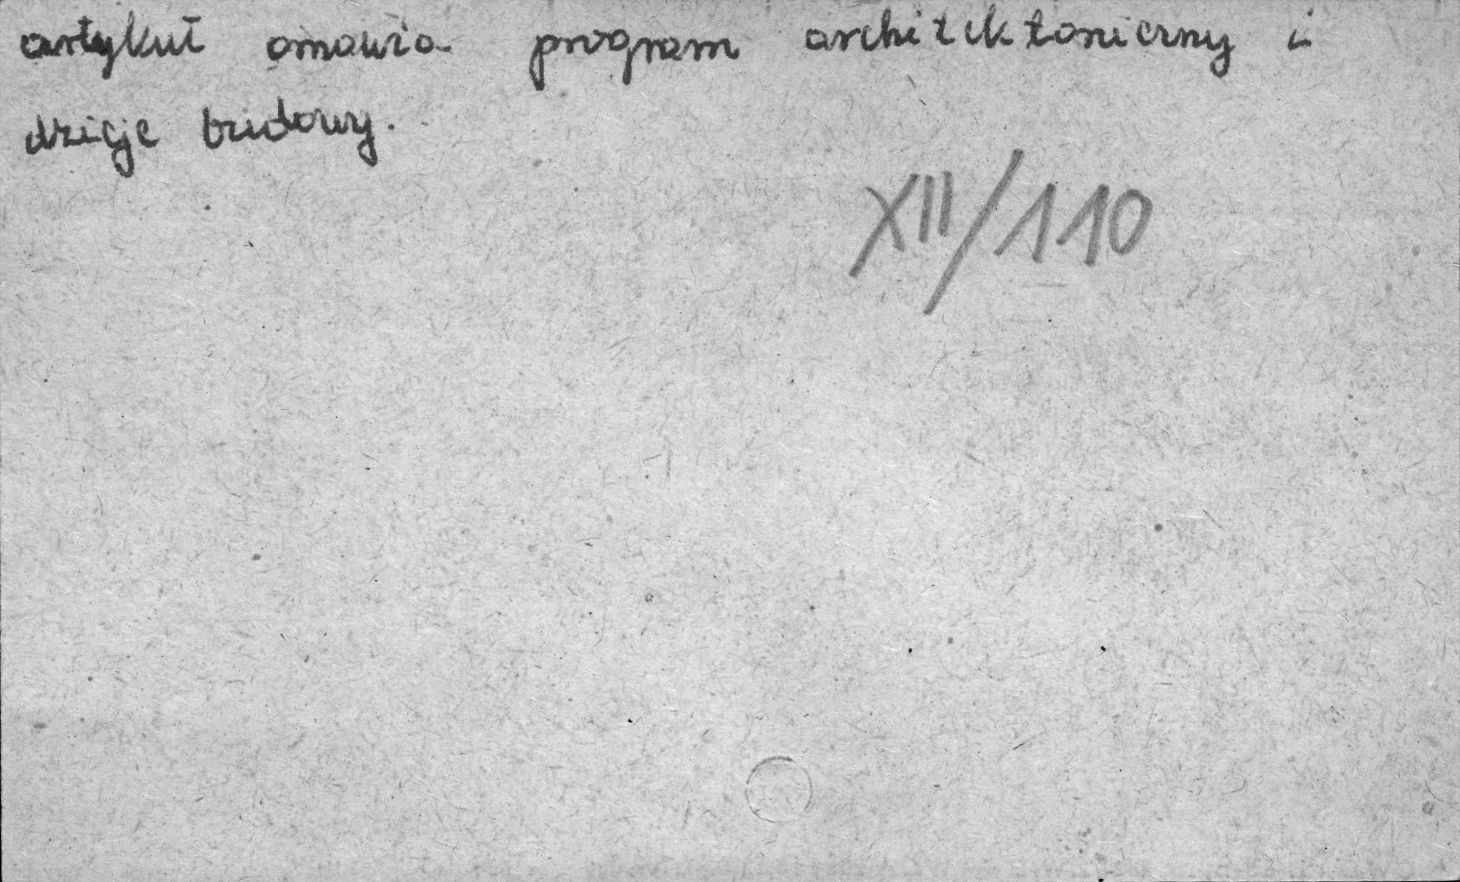 artykuł omawia program architektoniczny i
dzieje budowy.
XII/110